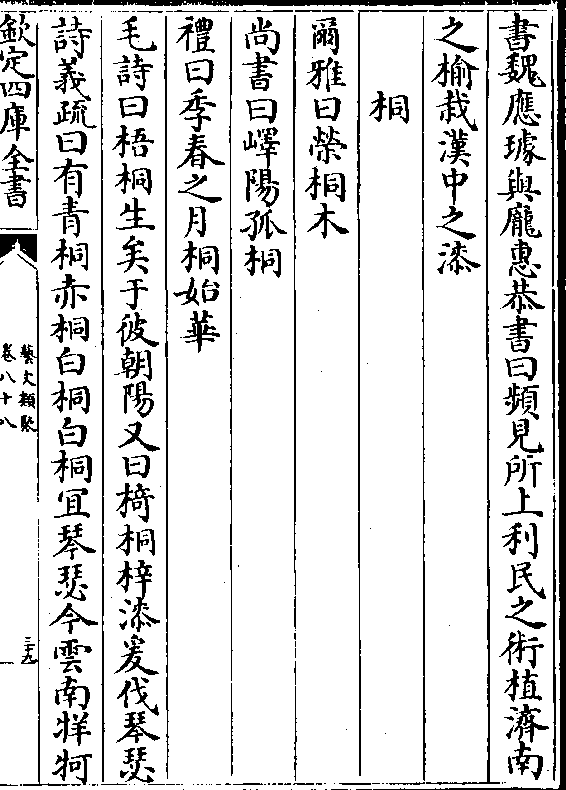 書魏應璩與龐惠恭書曰頻見所上利民之術植濟南
之榆栽漢中之漆
桐
爾雅曰榮桐木
尚書曰嶧陽孤桐
禮曰季春之月桐始華
毛詩曰梧桐生矣于彼朝陽又曰椅桐梓漆爰伐琴瑟
詩義疏曰有青桐赤桐白桐白桐冝琴瑟今雲南牂牁
欽定四庫全書
藝文類聚
卷八十八
三十九